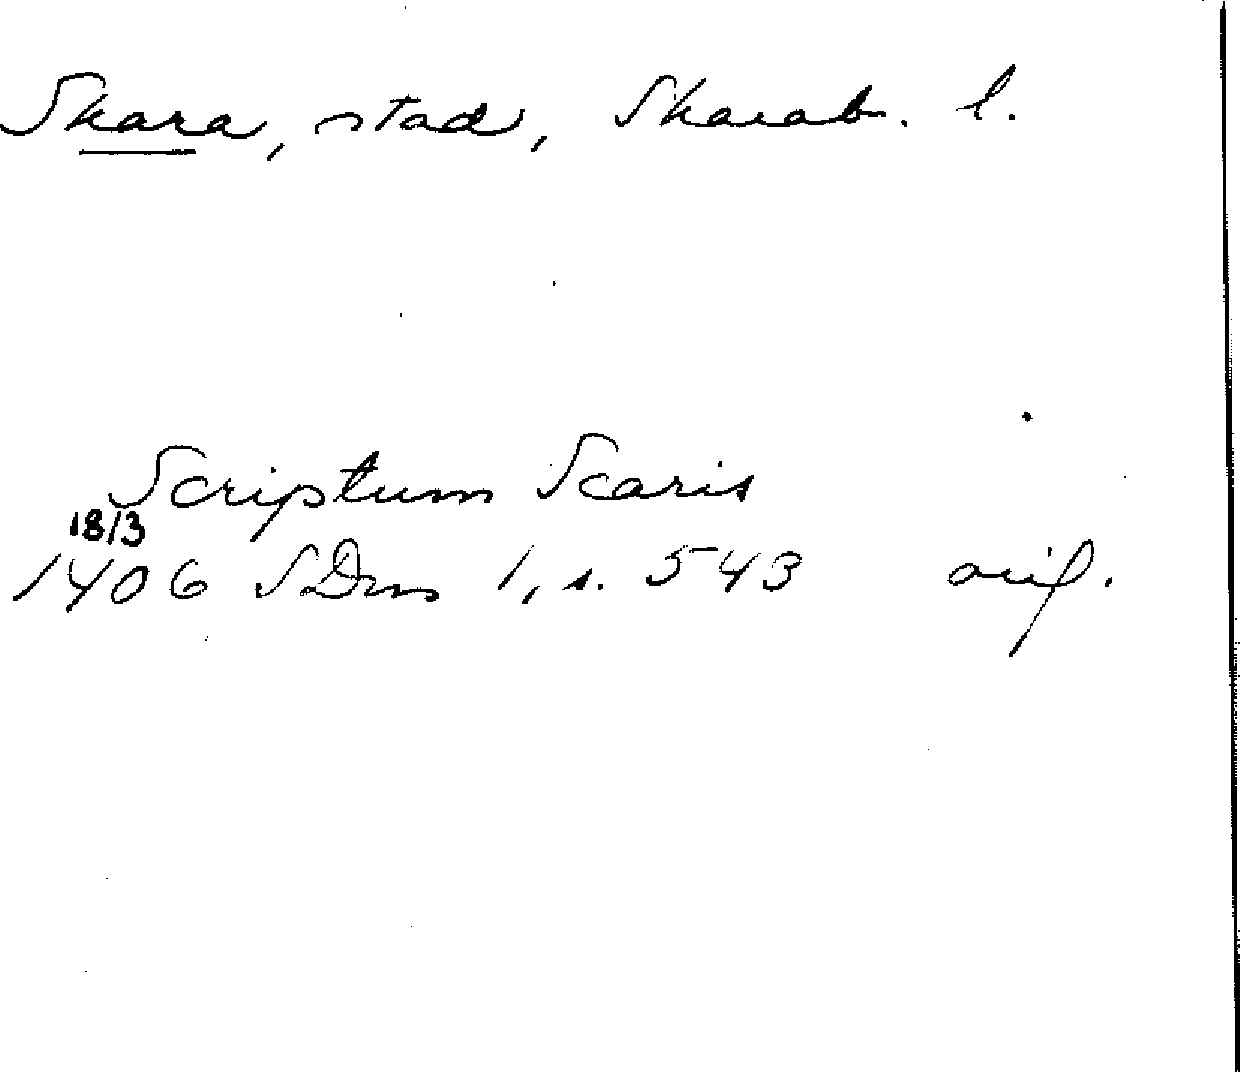 Skara, stad, Skarab. l.
Scriptum Scaris
18/3
1406 SDns 1, s. 543 orig.